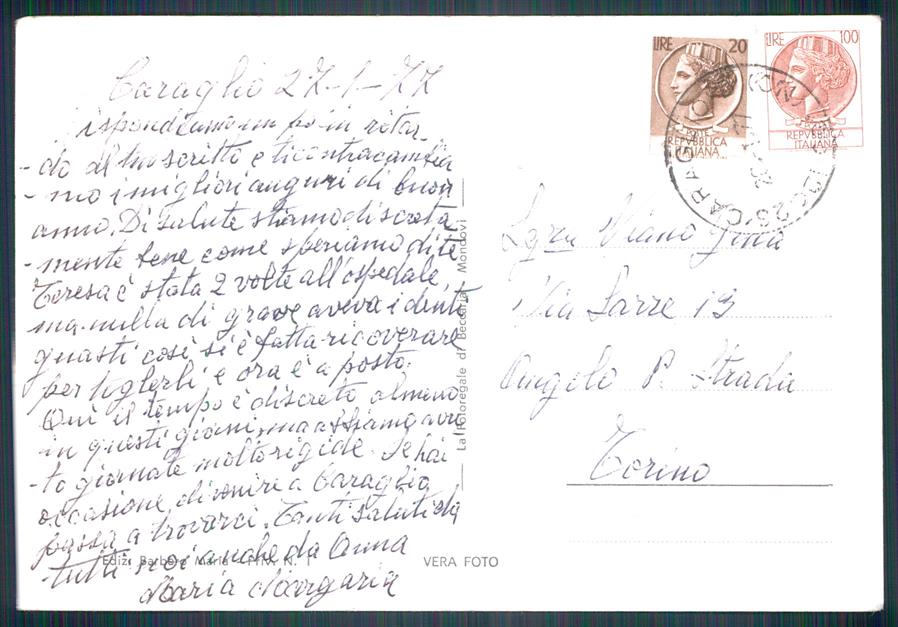 Caraglio 27-1-77
rispondiamo un po in ritar
- do al tuo scritto e ti contracambia
- mo i migliori auguri di buon
anno. Di salute stiamo discreta
- mente bene come speriamo di te
Teresa è stata 2 volte all'ospedale,
ma nulla di grave aveva i denti
guasti così si è fatta ricoverare
per toglierli e ora è a posto.
Qui il tempo è discreto almeno
in questi giorni, ma abbiamo avu
- to giornate molto rigide. Se hai
occasione di venire a Caraglio
passa a trovarci. Tanti saluti da
- tutti noi anche da Anna
Maria Margaria
Ediz. Barbero Maria - Priv. N. 1
VERA FOTO
La Fotoregale di Beccaria - Mondovì
LIRE 20
REPVBBLICA
ITALIANA
LIRE 100
REPVBBLICA
ITALIANA
12023 CARAGLIO
Viano Gina
Via Sarre 13
Angolo P. Strada
Torino